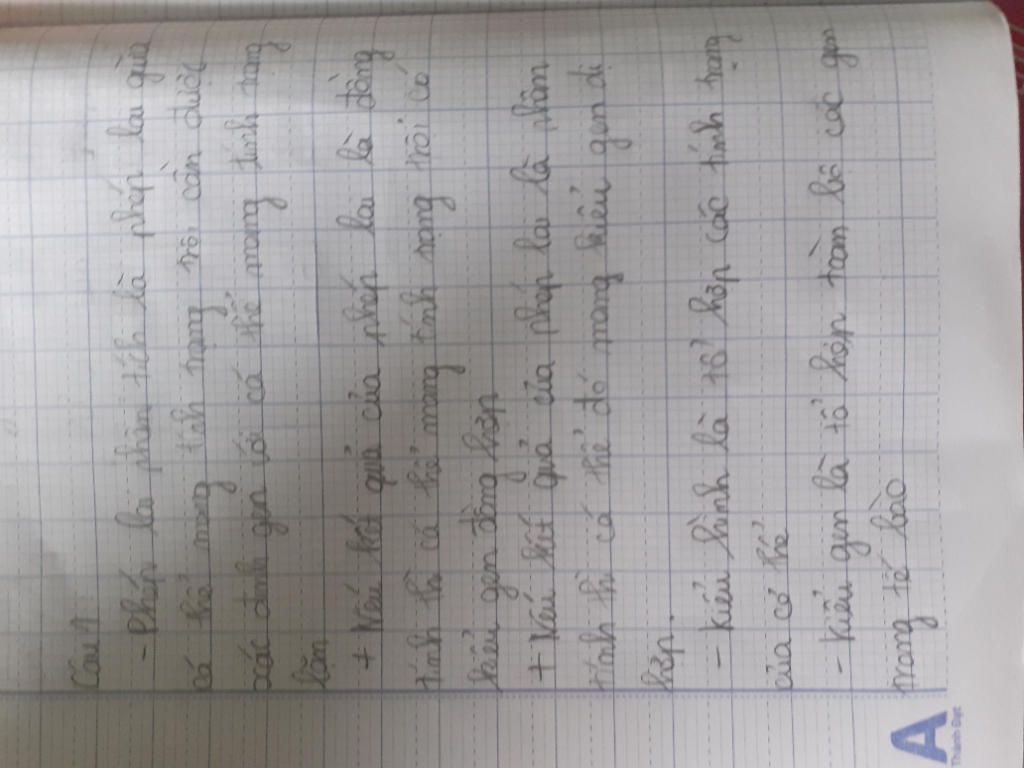 Câu 1
- Phép lai phân tích là phép lai giữa
cá thể mang tính trạng trội cần được
xác định gen với cá thể mang tính trạng
lặn
+ Nếu kết quả của phép lai là đồng
tính thì cá thể mang tính trạng trội có
kiểu gen đồng hợp
+ Nếu kết quả của phép lai là phân
tính thì cá thể đó mang kiểu gen dị
hợp.
- Kiểu hình là tổ hợp các tính trạng
của cơ thể
- Kiểu gen là tổ hợp toàn bộ các gen
trong tế bào
A
Thành Đạt